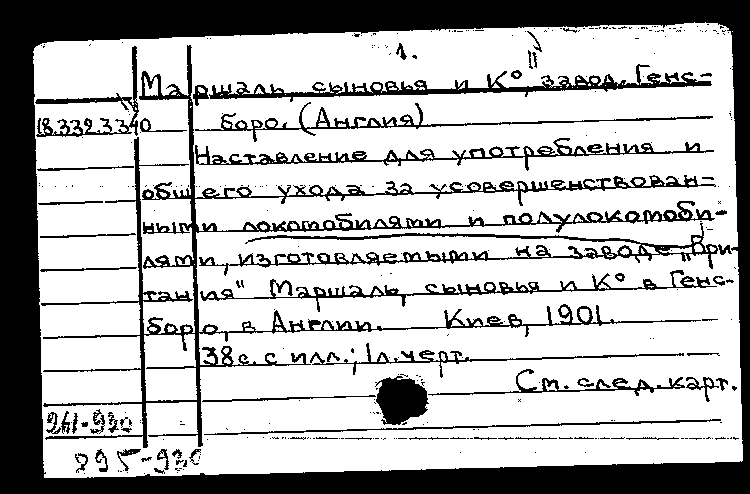 1.
Маршаль, сыновья и К°", завод. Генс-
18.332.3340
боро. (Англия)
Наставление для употребления и
общего ухода за усовершенствован-
ными локомобилями и полулокомоби-
лями, изготовляемыми на заводе „Бри-
тания" Маршаль, сыновья и К° в Генс-
боро, в Англии. Киев, 1901.
38с. с илл.; 1л. черт.
См. след. карт.
261-930
895-930